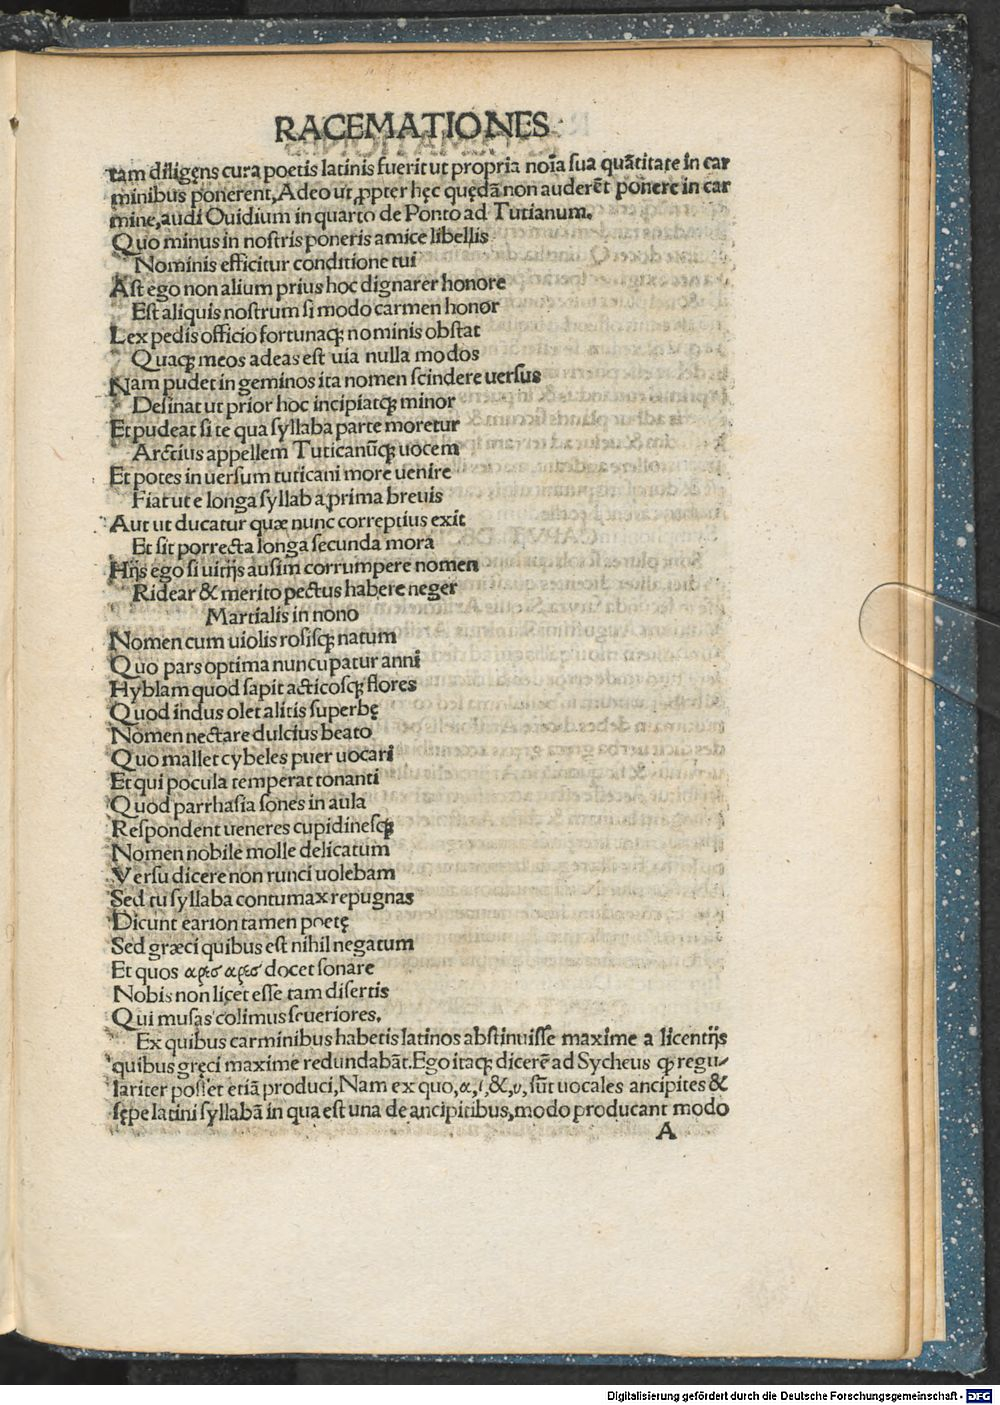 RACEMATIONES
tam diligens cura poetis latinis fuerit ut propria noīa sua quātitate in car
minibus ponerent, Adeo ut ꝓpter hęc quędā non auderēt ponere in car
mine, audi Ouidium in quarto de Ponto ad Tutianum.
Quo minus in nostris poneris amice libellis
Nominis efficitur conditione tui
Ast ego non alium prius hoc dignarer honore
Est aliquis nostrum si modo carmen honor
Lex pedis officio fortunaqꝫ nominis obstat
Quaqꝫ meos adeas est uia nulla modos
Nam pudet in geminos ita nomen scindere uersus
Desinat ut prior hoc incipiatqꝫ minor
Et pudeat si te qua syllaba parte moretur
Arctius appellem Tuticanūqꝫ uocem
Et potes in uersum tuticani more uenire
Fiat ut e longa syllaba prima breuis
Aut ut ducatur quæ nunc correptius exit
Et sit porrecta longa secunda mora
Hijs ego si uitijs ausim corrumpere nomen
Ridear & merito pectus habere neger
Martialis in nono
Nomen cum uiolis rosisqꝫ natum
Quo pars optima nuncupatur anni
Hyblam quod sapit acticosqꝫ flores
Quod indus olet alitis superbę
Nomen nectare dulcius beato
Quo mallet cybeles puer uocari
Et qui pocula temperat tonanti
Quod parrhasia sones in aula
Respondent ueneres cupidinesqꝫ
Nomen nobile molle delicatum
Versu dicere non runci uolebam
Sed tu syllaba contumax repugnas
Dicunt earion tamen poetę
Sed græci quibus est nihil negatum
Et quos αρεσ αρεσ docet sonare
Nobis non licet esse tam disertis
Qui musas colimus seueriores.
Ex quibus carminibus habetis latinos abstinuisse maxime a licentijs
quibus gręci maxime redundabāt. Ego itaqꝫ dicerē ad Sycheus ꝙ regu-
lariter posset etiā produci, Nam ex quo, α, ι, &, υ, sūt uocales ancipites &
sępe latini syllabā in qua est una de ancipitibus, modo producant modo
A
Digitalisierung gefördert durch die Deutsche Forschungsgemeinschaft - DFG